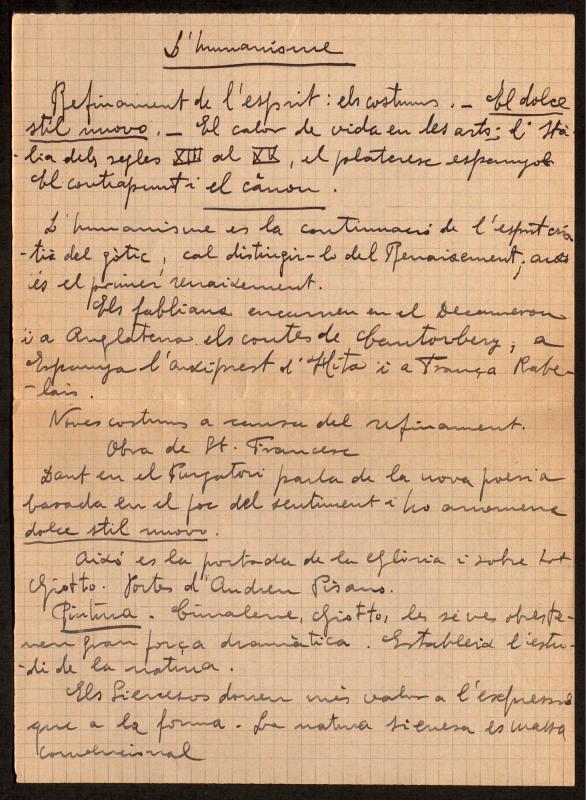 L'humanisme
Refinament de l'esprit: els costums. - El dolce
stil nuovo. - El calor de vida en les arts; l'Ità-
lia dels segles XIII al XV, el plateresc espanyol.
El contrapunt i el cànon.
L'humanisme es la continuació de l'esprit cris-
-tià del gòtic, cal distingir-lo del Renaixement; això
és el primer renaixement.
Els fabliaux encarnen en el Decameron
i a Anglaterra els contes de Cantorbery, a
Espanya l'arxiprest d'Hita i a França Rabe-
-lais.
Noves costums a causa del refinament.
Obra de St. Francesc
Dant en el Purgatori parla de la nova poesia
basada en el foc del sentiment i ho anomena
dolce stil nuovo.
Aixó es la portada de la Glòria i sobre tot
Giotto. Portes d'Andreu Pisano.
Pintura. Cimabue, Giotto, les seves obres te-
nen gran força dramàtica. Estableix l'estu-
di de la natura.
Els Sienesos donen més valor a l'expressió
que a la forma. La natura sienesa es massa
convencional